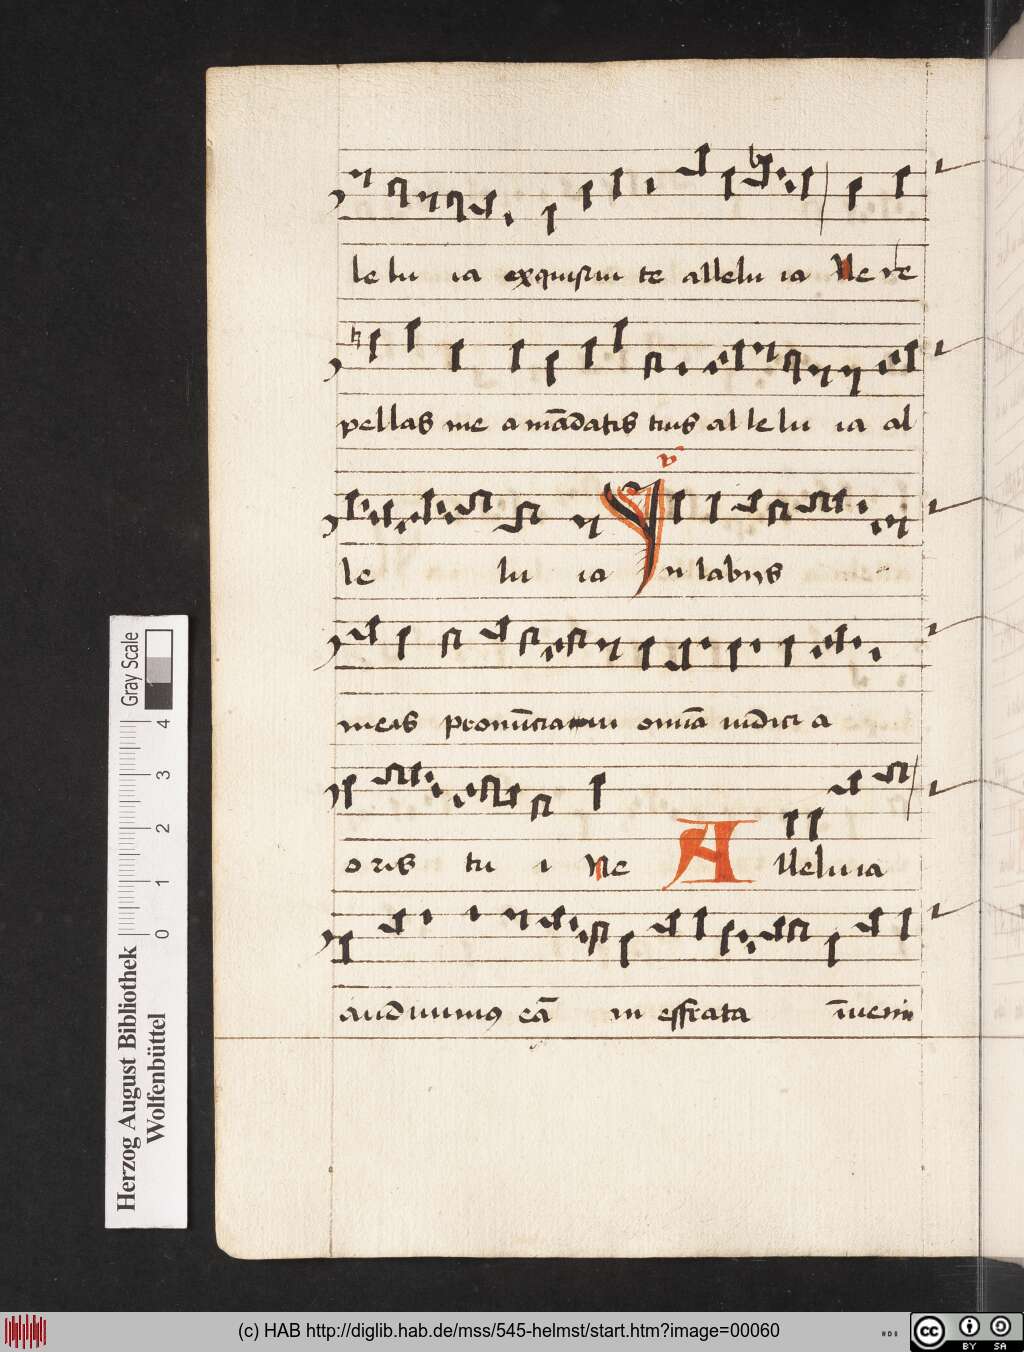 le lu ia exquisiui te allelu ia Ne re
pellas me a mādatis tuis al le lu ia al
v̄
le lu ia In labijs
meis pronūciaui omīa iudici a
oris tu i Ne Alleluia
audiuimus eā in effrata īueni
Gray Scale
4
3
2
1
0
Herzog August Bibliothek
Wolfenbüttel
(c) HAB http://diglib.hab.de/mss/545-helmst/start.htm?image=00060
cc BY SA